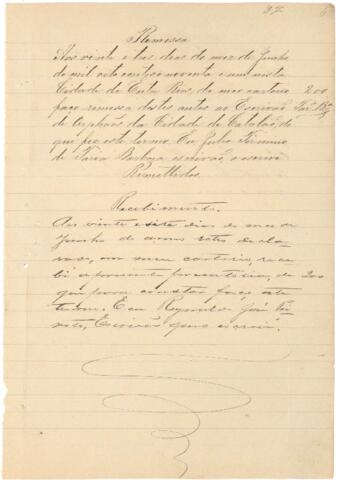 27
Remessa
Aos vinte e tres dias do mez de Junho
de mil oito centos noventa e um nesta
Cidade de Entre Rios, do meu cartorio
200
faço remessa destes autos ao Escrivão
de Orphãos da Cidade de Catalão, do
que fiz este termo. Eu Julio
de Faria Barbosa escrivão o escrevi
Remettidos
Recebimento.
Aos vinte e sete dias do mez de
Junho do anno retro decla-
rado, em meu cartorio, rece-
bi a presente precatoria, do
que para constar faço este
termo. E eu José
Escrivão que escrevi.